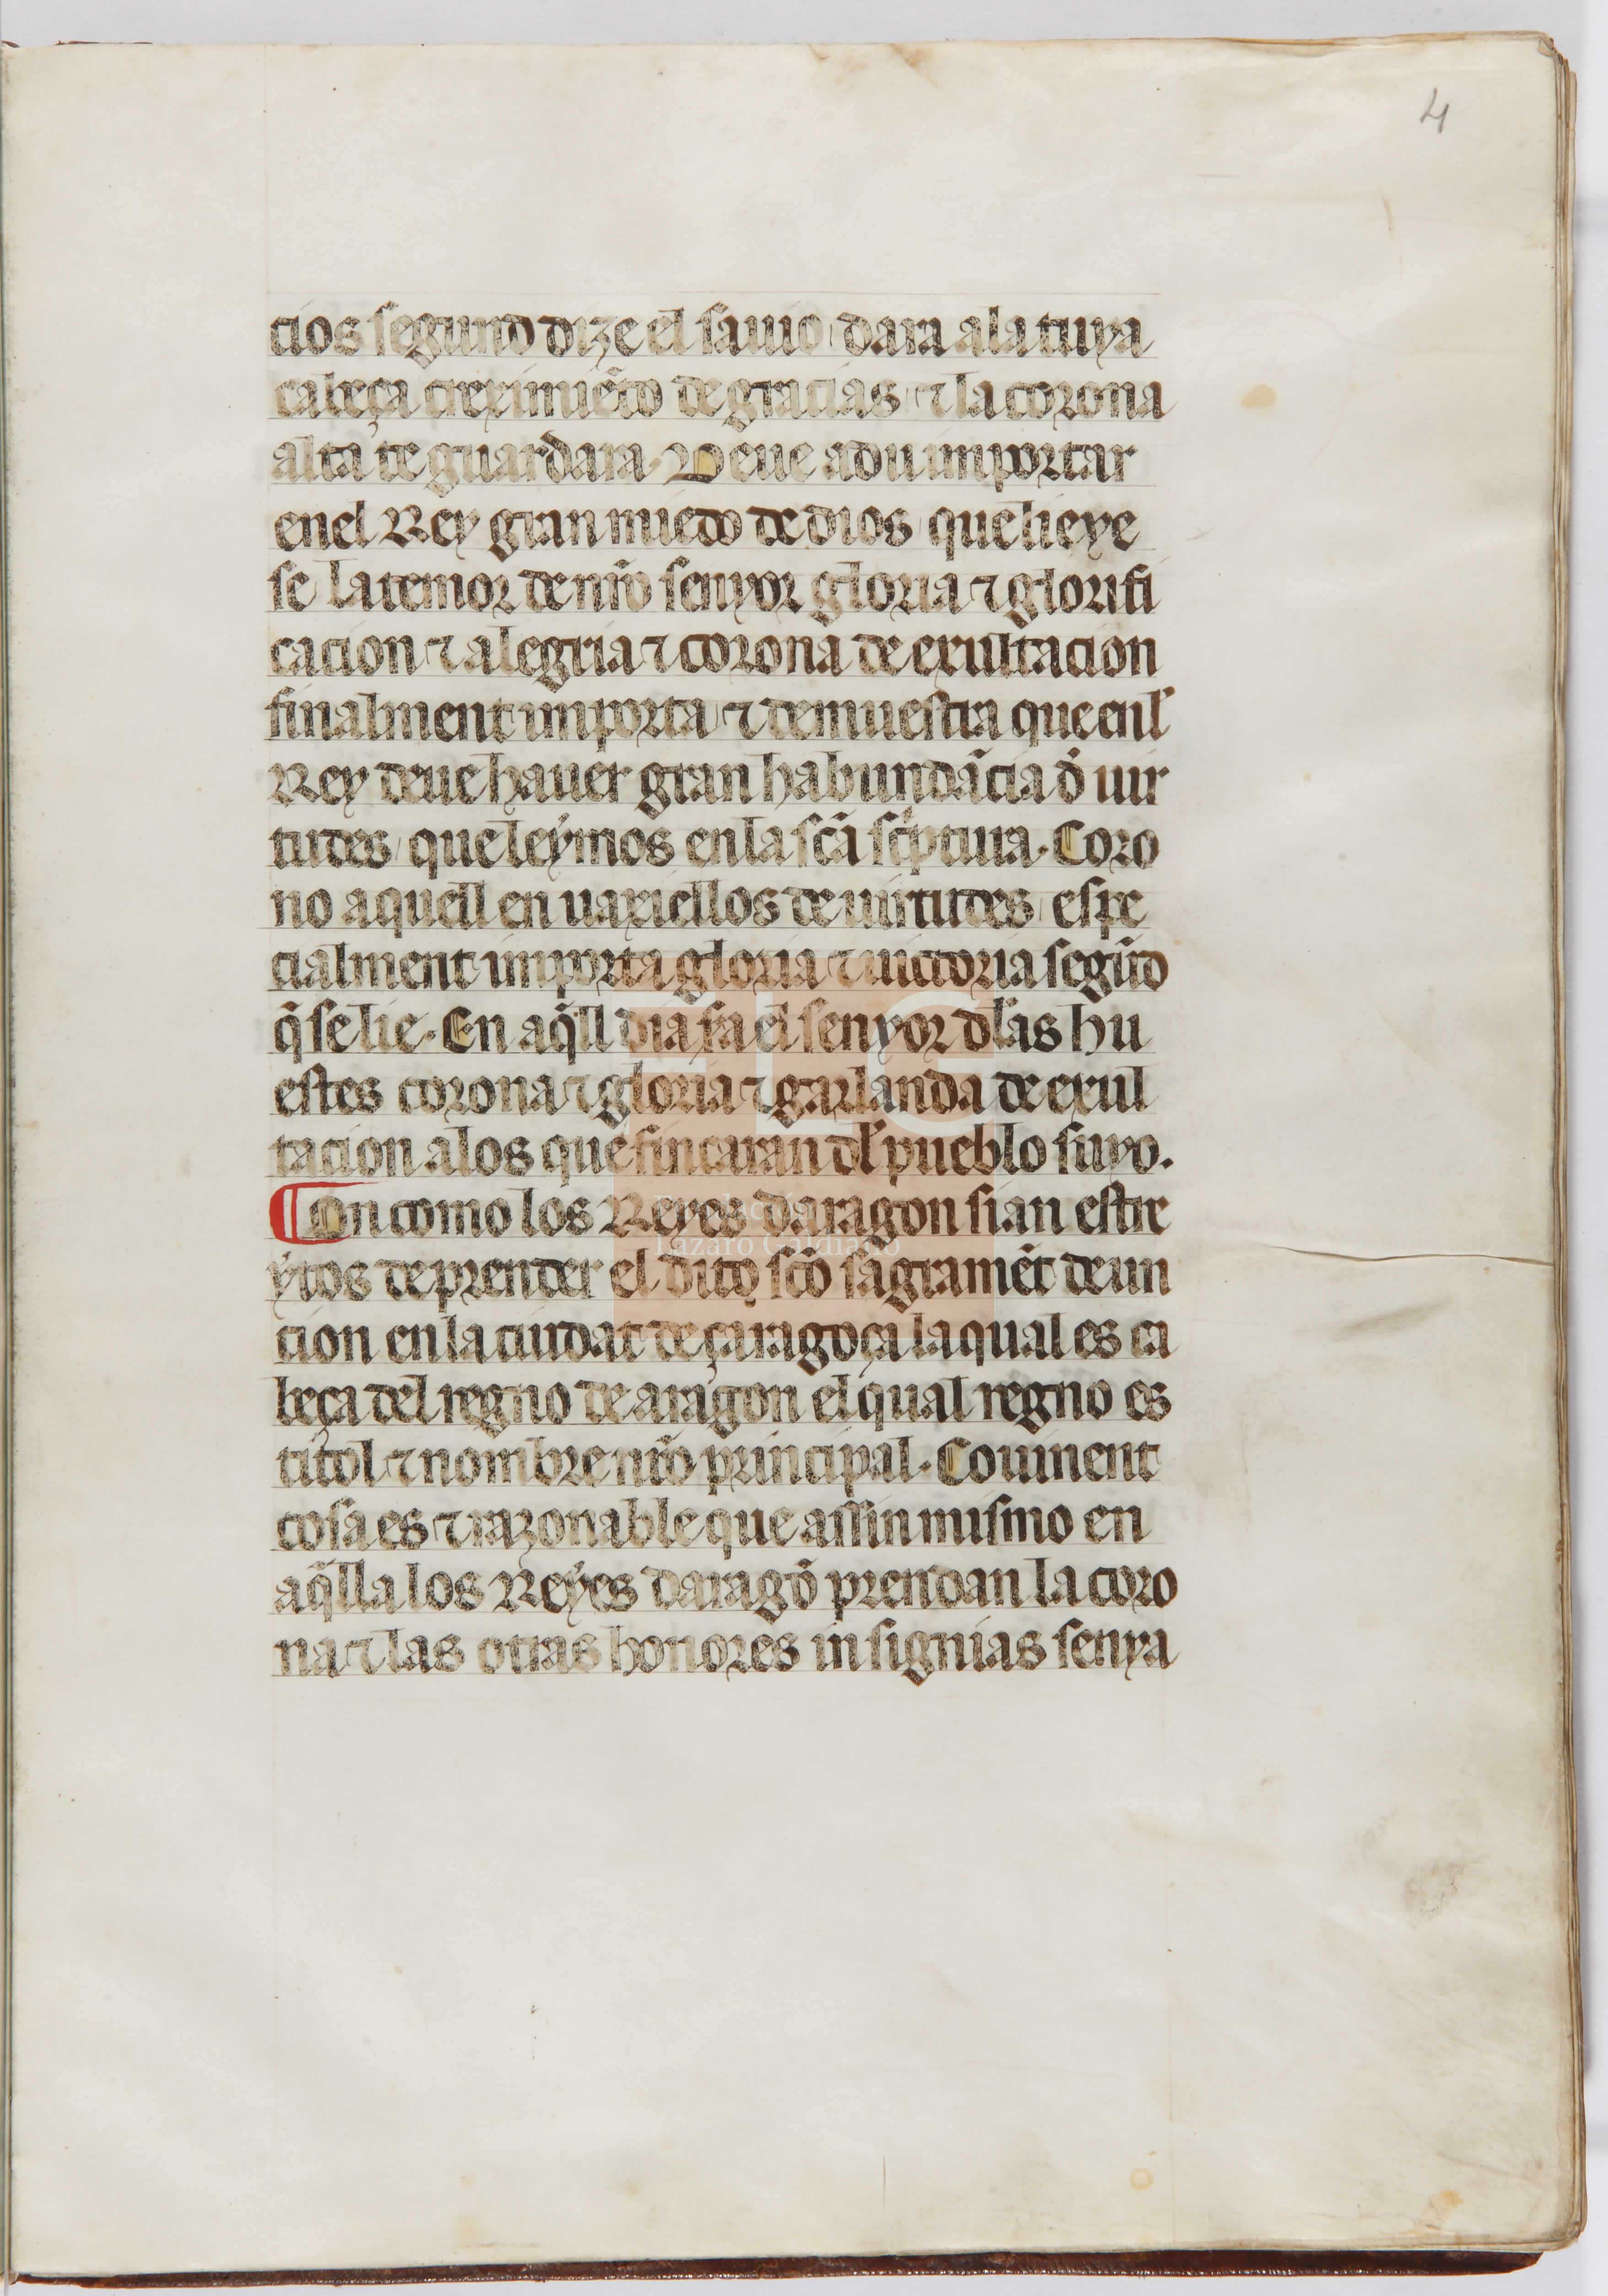 4
cios segund dize el sauio dara a la tuya
cabeça creximiẽto de gracias ⁊ la corona
alta te guardara. Deue adu importar
enel Rey gran miedo de dios que lieye
se la temor de nr̃o senyor gloria ⁊ glorifi
cacion ⁊ alegria ⁊ corona de exultacion
finalment importa ⁊ demuestra que enl
Rey deue hauer gran habundãcia d̃ uir
tudes que leymos enla sc̃a sc̃ptura. Coro
no aquell en uaxiellos de uirtudes espe
cialment importa gloria ⁊ uictoria segũd
q̃ se lie. En aq̃ll dia sa el senyor dlas hu
estes corona ⁊ gloria ⁊ garlanda de exul
tacion alos que fincaran dl pueblo suyo.
¶ On como los Reyes daragon sian estre
ytos deprender el dito sc̃o sagramẽt de un
cion enla ciudat de çaragoça laqual es ca
beça del regno de aragon el qual regno es
titol ⁊ nombre nr̃o principal. Couinent
cosa es ⁊ razonable que assin mismo en
aq̃lla los Reyes daragõ prendan la coro
na ⁊ las otras honores insignias senya
Lázaro Galdiano